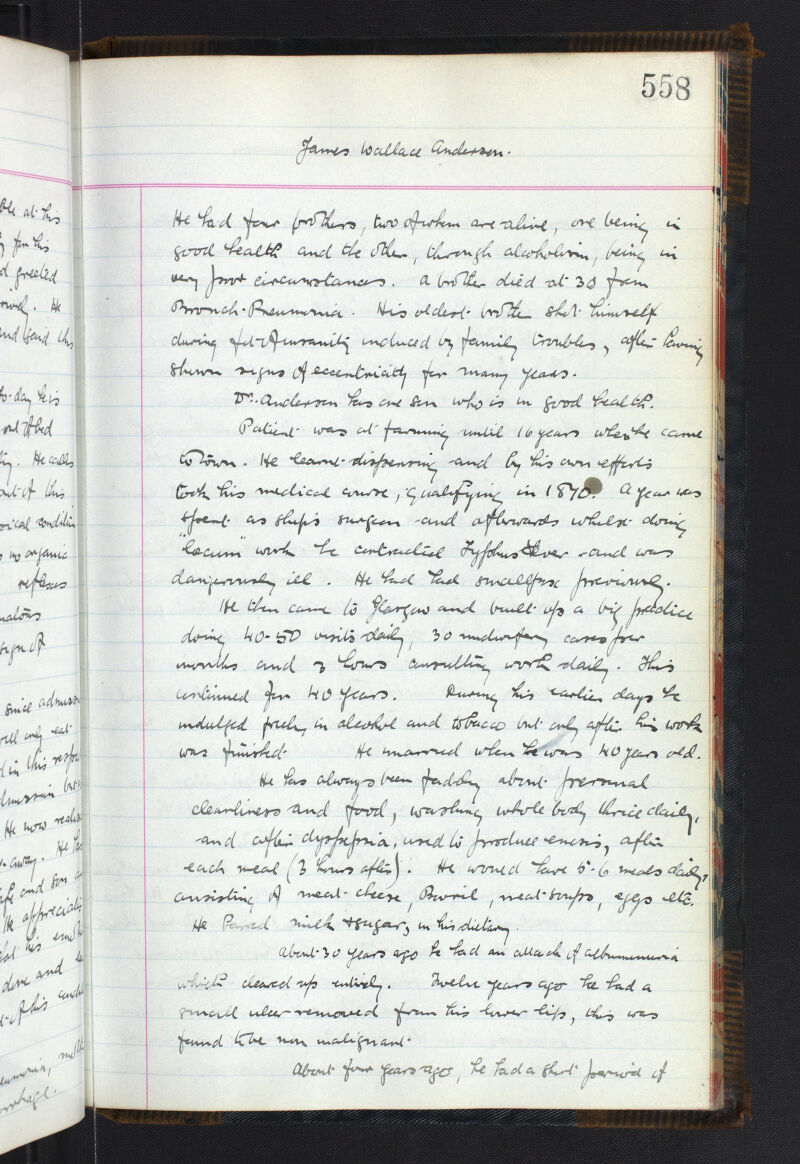 558
James Wallace Anderson.
He had four brothers, two of whom are alive, one being in
good health and the other, through alcoholism, being in
very poor circumstances. A brother died at 30 from
Bronch-Pneumonia. His oldest brother shot himself
during fit of insanity induced by family troubles, after having
shown signs of eccentricity for many years.
Dr. Anderson has one son who is in good health.
Patient was at farming until 16 years when he came
to town. He learnt dispensing and by his own efforts
took his medical course, qualifying in 1870. A year was
spent as ship's surgeon and afterwards whilst doing
"locum" work he contracted Typhus Fever and was
dangerously ill. He had had smallpox previously.
He then came to Glasgow and built up a big practice
doing 40-50 visits daily, 30 midwifery cases per
month and 3 hours consulting work daily. This
continued for 40 years. During his earlier days he
indulged freely in alcohol and tobacco but only after his work
was finished. He married when he was 40 years old.
He has always been faddy about personal
cleanliness and food, washing whole body thrice daily,
and after dyspepsia, used to produce emesis, after
each meal (3 hours after). He would have 5-6 meals daily,
consisting of meat-cheese, Bovril, meat-soups, eggs etc.
He milk & sugar, in his dietary.
About 30 years ago he had an attack of albuminuria
which cleared up entirely. Twelve years ago he had a
small ulcer removed from his lower lip, this was
found to be non malignant.
About four years ago, he had a short period of